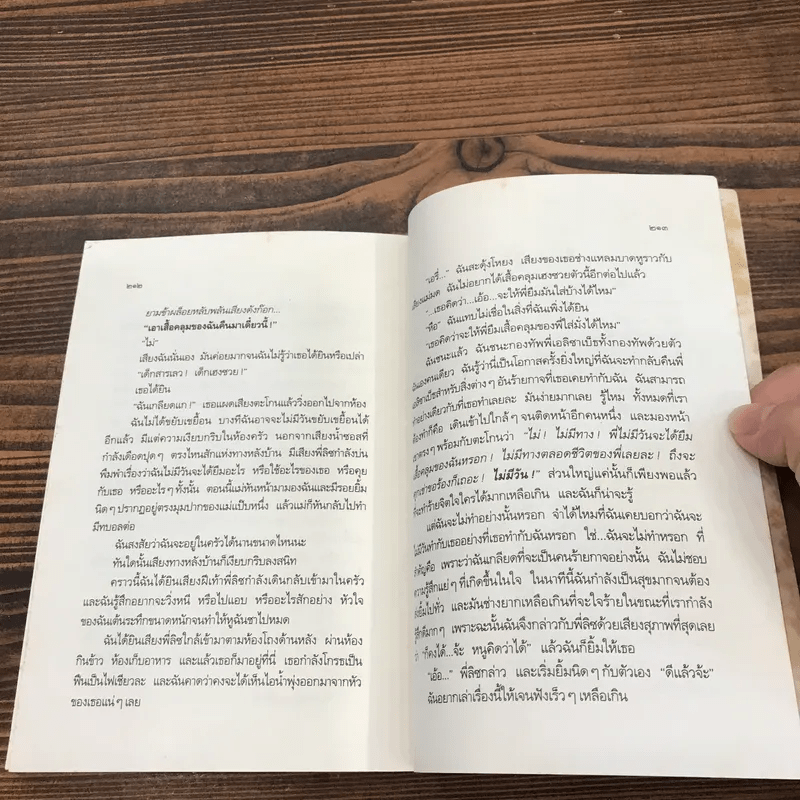 ๒๑๒
ยามช้าผล็อยหลับพลันเสียงดังก๊อก...
"เอาเสื้อคลุมของฉันคืนมาเดี๋ยวนี้ !"
"ไม่"
เสียงฉันนั่นเอง มันค่อยมากจนฉันไม่รู้ว่าเธอได้ยินหรือเปล่า
"เด็กสารเลว ! เด็กเฮงซวย !"
เธอได้ยิน
"ฉันเกลียดแก !" เธอแผดเสียงตะโกนแล้ววิ่งออกไปจากห้อง
ฉันไม่ได้ขยับเขยื้อน บางทีฉันอาจจะไม่มีวันขยับเขยื้อนได้
อีกแล้ว มีแต่ความเงียบกริบในห้องครัว นอกจากเสียงน้ำซอสที่
กำลังเดือดปุด ๆ ตรงไหนสักแห่งทางหลังบ้าน มีเสียงพี่ลิซกำลังบ่น
พึมพำเรื่องว่าฉันไม่มีวันจะได้ยืมอะไร หรือใช้อะไรของเธอ หรือคุย
กับเธอ หรืออะไร ๆ ทั้งนั้น ตอนนี้แม่หันหน้ามามองฉันและมีรอยยิ้ม
นิด ๆ ปรากฏอยู่ตรงมุมปากของแม่แป๊บหนึ่ง แล้วแม่ก็หันกลับไปทำ
มีทบอลต่อ
ฉันสงสัยว่าฉันจะอยู่ในครัวได้นานขนาดไหนนะ
ทันใดนั้นเสียงทางหลังบ้านก็เงียบกริบลงสนิท
คราวนี้ฉันได้ยินเสียงฝีเท้าพี่ลิซกำลังเดินกลับเข้ามาในครัว
และฉันรู้สึกอยากจะวิ่งหนี หรือไปแอบ หรืออะไรสักอย่าง หัวใจ
ของฉันเต้นระทึกขนาดหนักจนทำให้หูฉันชาไปหมด
ฉันได้ยินเสียงพี่ลิซใกล้เข้ามาตามห้องโถงด้านหลัง ผ่านห้อง
กินข้าว ห้องเก็บอาหาร และแล้วเธอก็มาอยู่ที่นี่ เธอกำลังโกรธเป็น
ฟืนเป็นไฟเชียวละ และฉันคาดว่าคงจะได้เห็นไอน้ำพุ่งออกมาจากหัว
ของเธอแน่ ๆ เลย
๒๑๓
"เอรี่..." ฉันสะดุ้งโหยง เสียงของเธอช่างแหลมบาดหูราวกับ
เสียงแม่มด ฉันไม่อยากได้เสื้อคลุมเฮงซวยตัวนี้อีกต่อไปแล้ว
"...เธอคิดว่า...เอ้อ...จะให้พี่ยืมมันใส่บ้างได้ไหม"
"หือ" ฉันแทบไม่เชื่อในสิ่งที่ฉันเพิ่งได้ยิน
"เธอคิดว่าจะให้พี่ยืมเสื้อคลุมของพี่ใส่มั่งได้ไหม"
ฉันชนะแล้ว ฉันชนะกองทัพพี่เอลิซาเบ็ธทั้งกองทัพด้วยตัว
ฉันเองคนเดียว ฉันรู้ว่านี่เป็นโอกาสครั้งยิ่งใหญ่ที่ฉันจะทำกลับคืนพี่
เอลิซาเบ็ธสำหรับสิ่งต่าง ๆ อันร้ายกาจที่เธอเคยทำกับฉัน ฉันสามารถ
ทำอย่างเดียวกับที่เธอทำเลยละ มันง่ายมากเลย รู้ไหม ทั้งหมดที่เรา
ต้องทำก็คือ เดินเข้าไปใกล้ๆ จนติดหน้าอีกคนหนึ่ง และมองหน้า
เขาตรง ๆ พร้อมกับตะโกนว่า "ไม่ ! ไม่มีทาง ! พี่ไม่มีวันจะได้ยืม
เสื้อคลุมของฉันหรอก ! ไม่มีทางตลอดชีวิตของพี่เลยละ ! ถึงจะ
คุกเข่าขอร้องก็เถอะ ! ไม่มีวัน !" ส่วนใหญ่แค่นั้นก็เพียงพอแล้ว
ที่จะทำร้ายจิตใจใครได้มากเหลือเกิน และฉันก็น่าจะรู้
แต่ฉันจะไม่ทำอย่างนั้นหรอก จำได้ไหมที่ฉันเคยบอกว่าฉันจะ
ไม่มีวันทำกับเธออย่างที่เธอทำกับฉันหรอก ใช่...ฉันจะไม่ทำหรอก ที่
สำคัญคือ เพราะว่าฉันเกลียดที่จะเป็นคนร้ายกาจอย่างนั้น ฉันไม่ชอบ
ความรู้สึกแย่ ๆ ที่เกิดขึ้นในใจ ในนาทีนี้ฉันกำลังเป็นสุขมากจนต้อง
ยิ้มไปทั่ว และมันช่างยากเหลือเกินที่จะใจร้ายในขณะที่เรากำลัง
รู้สึกดีมาก ๆ เพราะฉะนั้นฉันจึงกล่าวกับพี่ลิซด้วยเสียงสุภาพที่สุดเลย
ว่า "ก็คงได้...จ้ะ หนูคิดว่าได้" แล้วฉันก็ยิ้มให้เธอ
"เอ้อ..." พี่ลิซกล่าว และเริ่มยิ้มนิด ๆ กับตัวเอง "ดีแล้วจ้ะ"
ฉันอยากเล่าเรื่องนี้ให้เจนฟังเร็ว ๆ เหลือเกิน